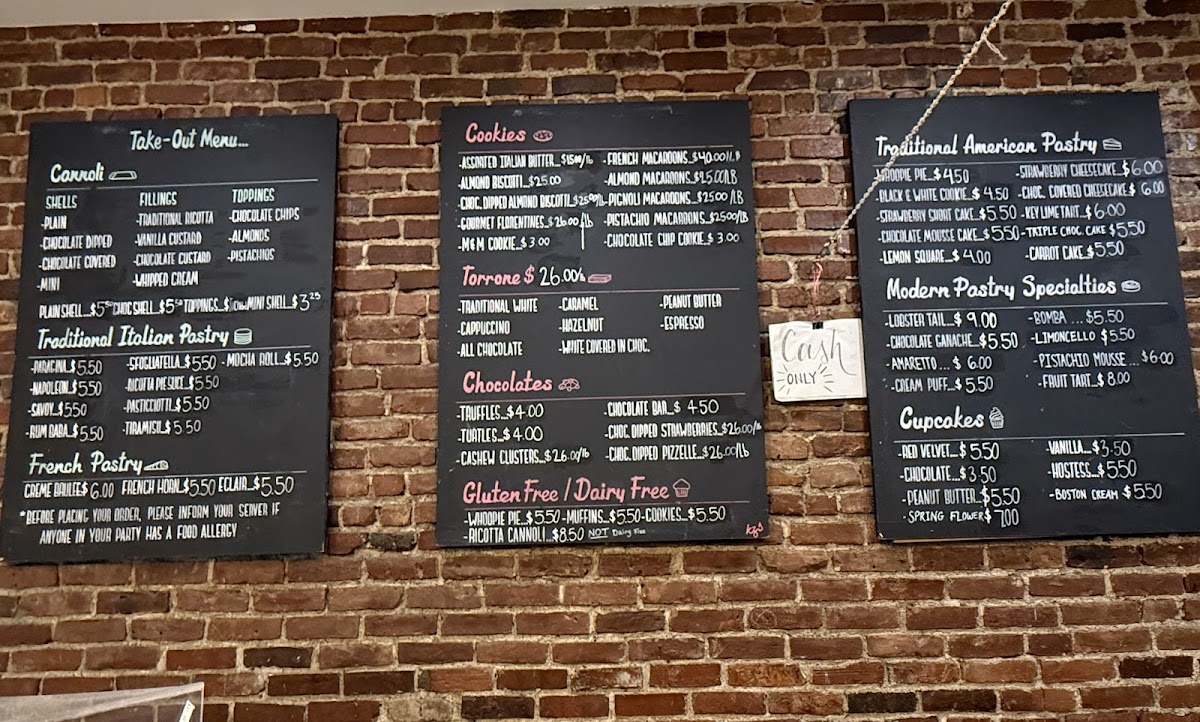 Take-Out Menu...
Cannoli
SHELLS FILLINGS TOPPINGS
-PLAIN -TRADITIONAL RICOTTA -CHOCOLATE CHIPS
-CHOCOLATE DIPPED -VANILLA CUSTARD -ALMONDS
-CHOCOLATE COVERED -CHOCOLATE CUSTARD -PISTACHIOS
-MINI -WHIPPED CREAM
PLAIN SHELL...$5.50 CHOC SHELL...$5.50 TOPPINGS...$ MINI SHELL...$3.25
Traditional Italian Pastry
$5.50 -SFOGLIATELLA...$5.50 -MOCHA ROLL...$5.50
-NAPOLEON...$5.50 -RICOTTA PIE SLICE...$5.50
-SAVOY...$5.50 -PASTICCIOTTI...$5.50
-RUM BABA...$5.50 -TIRAMISU...$5.50
French Pastry
CREME BRULEE$ 6.00 FRENCH HORN...$5.50 ECLAIR...$5.50
*BEFORE PLACING YOUR ORDER, PLEASE INFORM YOUR SERVER IF
ANYONE IN YOUR PARTY HAS A FOOD ALLERGY
Cookies
-ASSORTED ITALIAN BUTTER...$15.00/lb -FRENCH MACAROONS...$40.00/LB
-ALMOND BISCOTTI...$25.00 -ALMOND MACAROONS...$25.00/LB
-CHOC. DIPPED ALMOND BISCOTTI...$25.00/lb -PIGNOLI MACAROONS...$25.00/LB
-GOURMET FLORENTINES...$26.00/lb -PISTACHIO MACAROONS...$25.00/LB
-M&M COOKIE...$ 3.00 -CHOCOLATE CHIP COOKIE...$ 3.00
Torrone $ 26.00/lb
-TRADITIONAL WHITE -CARAMEL -PEANUT BUTTER
-CAPPUCCINO -HAZELNUT -ESPRESSO
-ALL CHOCOLATE -WHITE COVERED IN CHOC.
Chocolates
-TRUFFLES...$4.00 -CHOCOLATE BAR...$ 4.50
-TURTLES...$4.00 -CHOC. DIPPED STRAWBERRIES...$26.00/lb
-CASHEW CLUSTERS...$26.00/lb -CHOC. DIPPED PIZZELLE...$26.00/lb
Gluten Free / Dairy Free
-WHOOPIE PIE...$5.50 -MUFFINS...$5.50 -COOKIES...$5.50
-RICOTTA CANNOLI...$8.50 NOT Dairy Free
Cash
ONLY
Traditional American Pastry
-WHOOPIE PIE...$4.50 -STRAWBERRY CHEESECAKE...$ 6.00
-BLACK & WHITE COOKIE...$ 4.50 -CHOC. COVERED CHEESECAKE$ 6.00
-STRAWBERRY SHORT CAKE...$5.50 -KEY LIME TART...$6.00
-CHOCOLATE MOUSSE CAKE...$5.50 -TRIPLE CHOC. CAKE $5.50
-LEMON SQUARE...$ 4.00 -CARROT CAKE...$5.50
Modern Pastry Specialties
-LOBSTER TAIL...$ 9.00 -BOMBA ... $5.50
-CHOCOLATE GANACHE...$5.50 -LIMONCELLO $5.50
-AMARETTO ... $ 6.00 -PISTACHIO MOUSSE ... $6.00
-CREAM PUFF...$5.50 -FRUIT TART...$ 8.00
Cupcakes
-RED VELVET...$ 5.50 -VANILLA...$3.50
-CHOCOLATE...$3.50 -HOSTESS...$5.50
-PEANUT BUTTER...$5.50 -BOSTON CREAM $5.50
-SPRING FLOWER$ 7.00